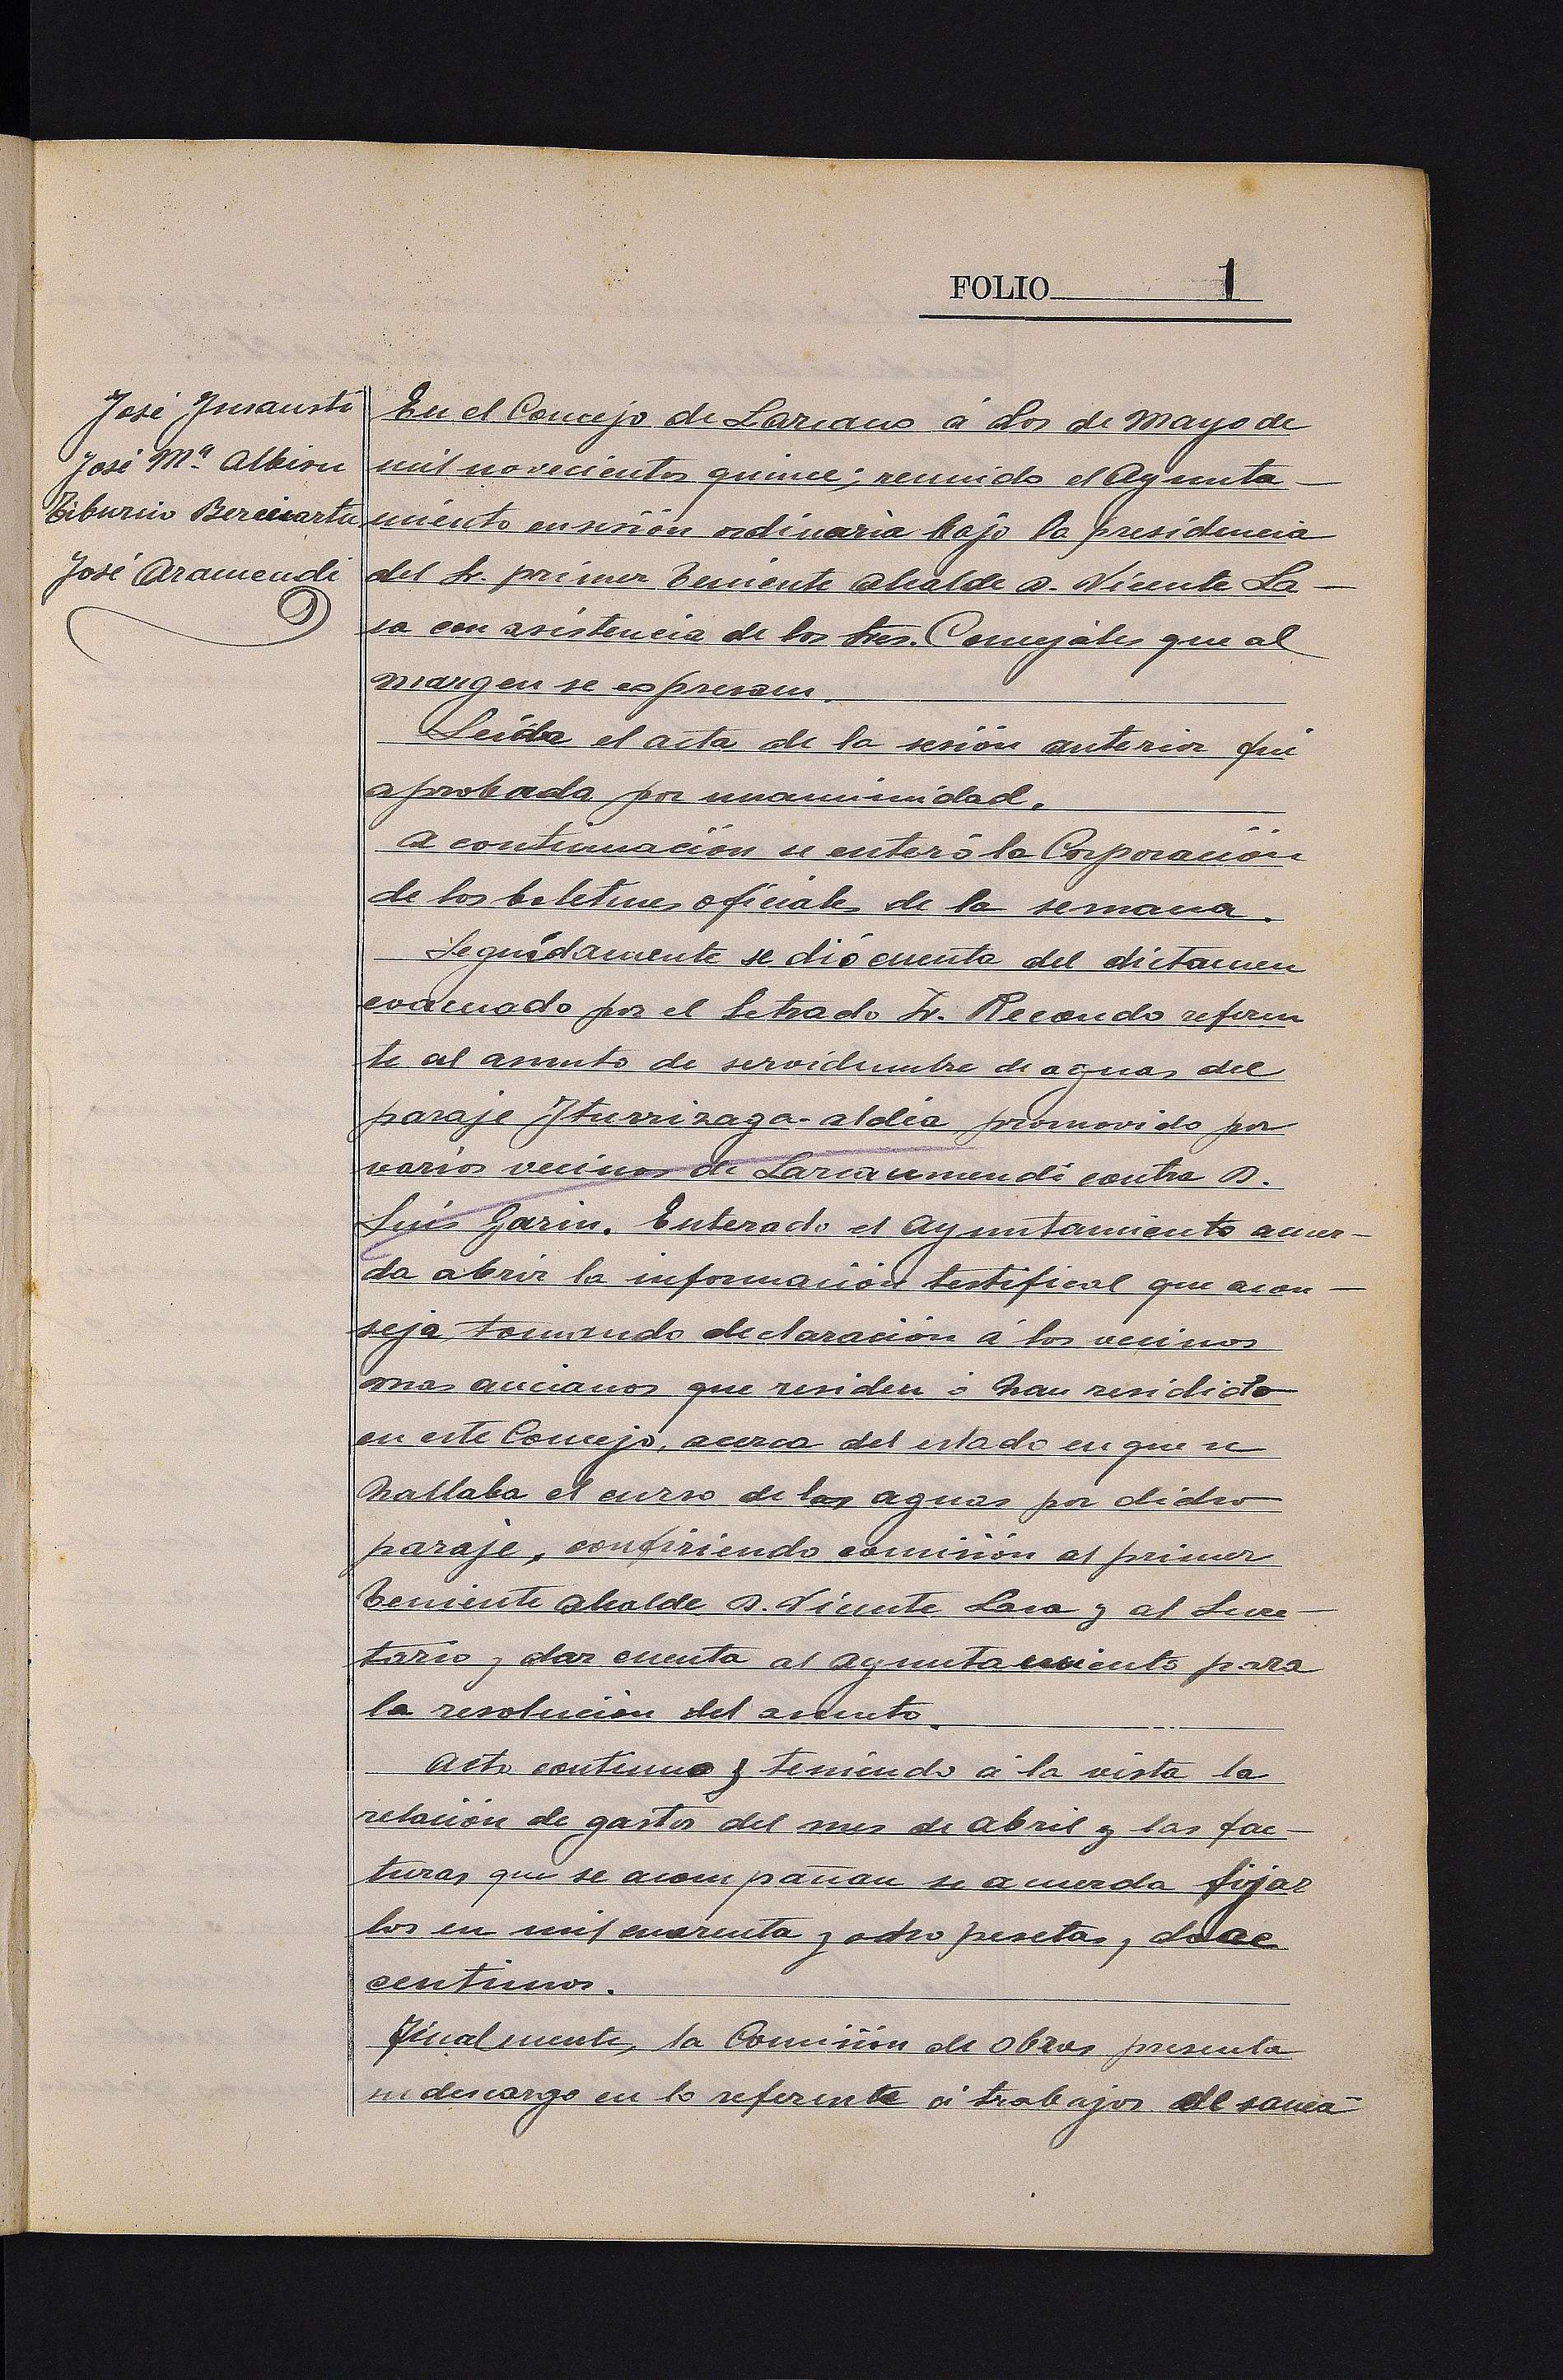 FOLIO 1
José Insausti
José Mª Albisu
Tiburcio Berciartu
José Aramendi
En el Concejo de Lazcano á dos de Mayo de
mil novecientos quince; reunido el Ayunta-
miento en sesión ordinaria bajo la presidencia
del Sr. primer Teniente Alcalde D. Vicente La-
sa con asistencia de los Sres. Concejales que al
margen se expresan.
Leída el acta de la sesión anterior fué
aprobada por unanimidad.
A continuación se enteró la Corporación
de los boletines oficiales de la semana.
Seguidamente se dió cuenta del dictamen
evacuado por el letrado Sr. Recondo referen
te al asunto de servidumbre de aguas del
paraje Iturrizaga-aldea promovido por
varios vecinos de Lazcaumendi contra D.
Luis Garin. Enterado el Ayuntamiento acuer-
da abrir la información testifical que acon-
seja tomando declaración á los vecinos
mas ancianos que residen ó han residido
en este Concejo, acerca del estado en que se
hallaba el curso de las aguas por dicho
paraje, confiriendo comisión al primer
Teniente Alcalde D. Vicente Lasa y al Secre-
tario y dar cuenta al Ayuntamiento para
la resolución del asunto.
Acto continuo y teniendo á la vista la
relación de gastos del mes de Abril y las fac-
turas que se acompañan se acuerda fijar
los en mil cuarenta y ocho pesetas, doce
centimos.
Finalmente, la Comisión de Obras presenta
su descargo en lo referente á trabajos de sanea-